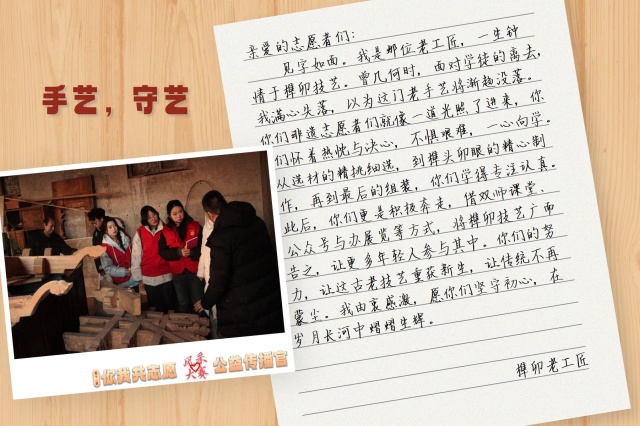 手艺，守艺
亲爱的志愿者们：
见字如面。我是那位老工匠，一生钟
情于榫卯技艺。曾几何时，面对学徒的离去，
我满心失落，以为这门老手艺将渐趋没落。
你们非遗志愿者们就像一道光照了进来，你
们怀着热忱与决心，不惧艰难，一心向学。
从选材的精挑细选，到榫头卯眼的精心制
作，再到最后的组装，你们学得专注认真。
此后，你们更是积极奔走，借双师课堂、
公众号与办展览等方式，将榫卯技艺广而
告之，让更多年轻人参与其中。你们的努
力，让这古老技艺重获新生，让传统不再
蒙尘。我由衷感激，愿你们坚守初心，在
岁月长河中熠熠生辉。
榫卯老工匠
你我共志愿 风采大赛 公益传播官